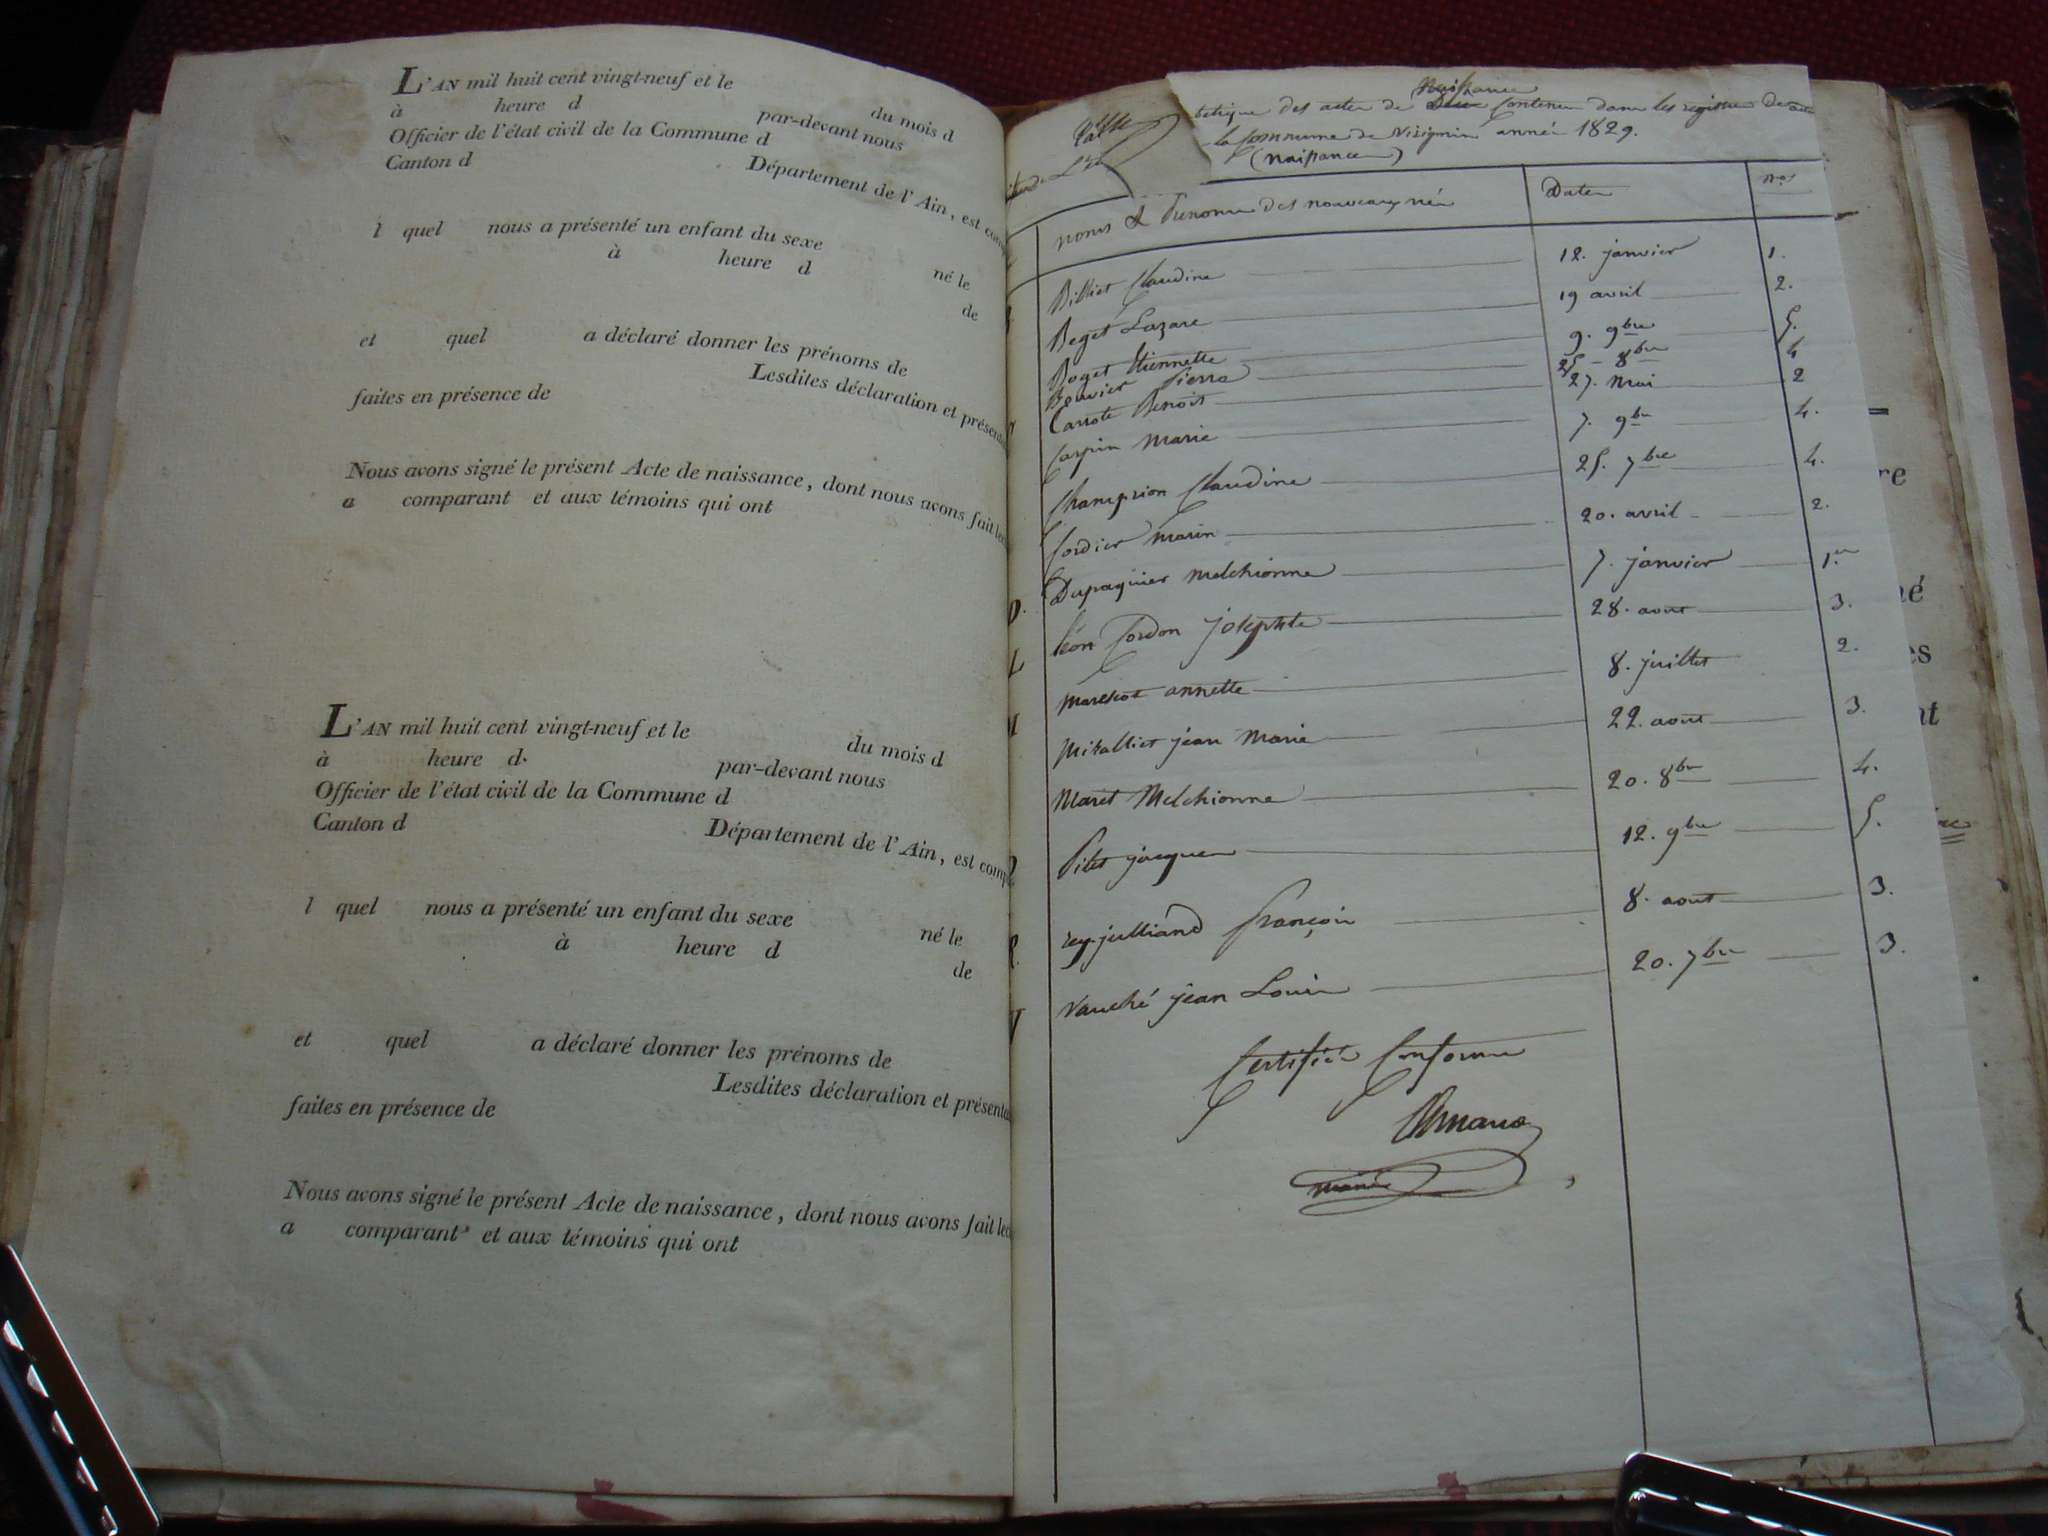 L'AN mil huit cent vingt-neuf et le du mois d
à heure d par-devant nous
Officier de l'état civil de la Commune d
Canton d Département de l'Ain, est com
l quel nous a présenté un enfant du sexe
à heure d né le
de
et quel a déclaré donner les prénoms de
Lesdites déclaration et présenta
faites en présence de
Nous avons signé le présent Acte de naissance, dont nous avons fait lec
a comparant et aux témoins qui ont
L'AN mil huit cent vingt-neuf et le du mois d
à heure d par-devant nous
Officier de l'état civil de la Commune d
Canton d Département de l'Ain, est comp
l quel nous a présenté un enfant du sexe
à heure d né le
de
et quel a déclaré donner les prénoms de
Lesdites déclaration et présenta
faites en présence de
Nous avons signé le présent Acte de naissance, dont nous avons fait lec
a comparant et aux témoins qui ont
naissance
betique des actes de contenu dans les registres de
la commune de année 1829.
(naissance)
noms & Prenoms des nouveaux nés Dates nos
Billiet Claudine 12. janvier 1.
Beget Lazare 19 avril 2.
Boget Etiennette 9. 9bre 5.
Bouvier Pierre 25 - 8bre 4
Carrote Benoit 27. mai 2
Carpin Marie 7. 9bre 4.
Champion Claudine 25. 7bre 4.
Cordier Marin 20. avril 2.
D. Dupaquier melchionne 7. janvier 1er
L léon Cordon Josephte 28. aout 3.
M Mareschot annette 8. juillet 2.
Mitallier jean Marie 22. aout 3.
Maret Melchionne 20. 8bre 4.
Pitet jacques 12. 9bre 5.
rey-julliand françois 8. aout 3.
V Vauché jean Louis 20. 7bre 3.
Certifié Conforme
maire
re
né
es
nt